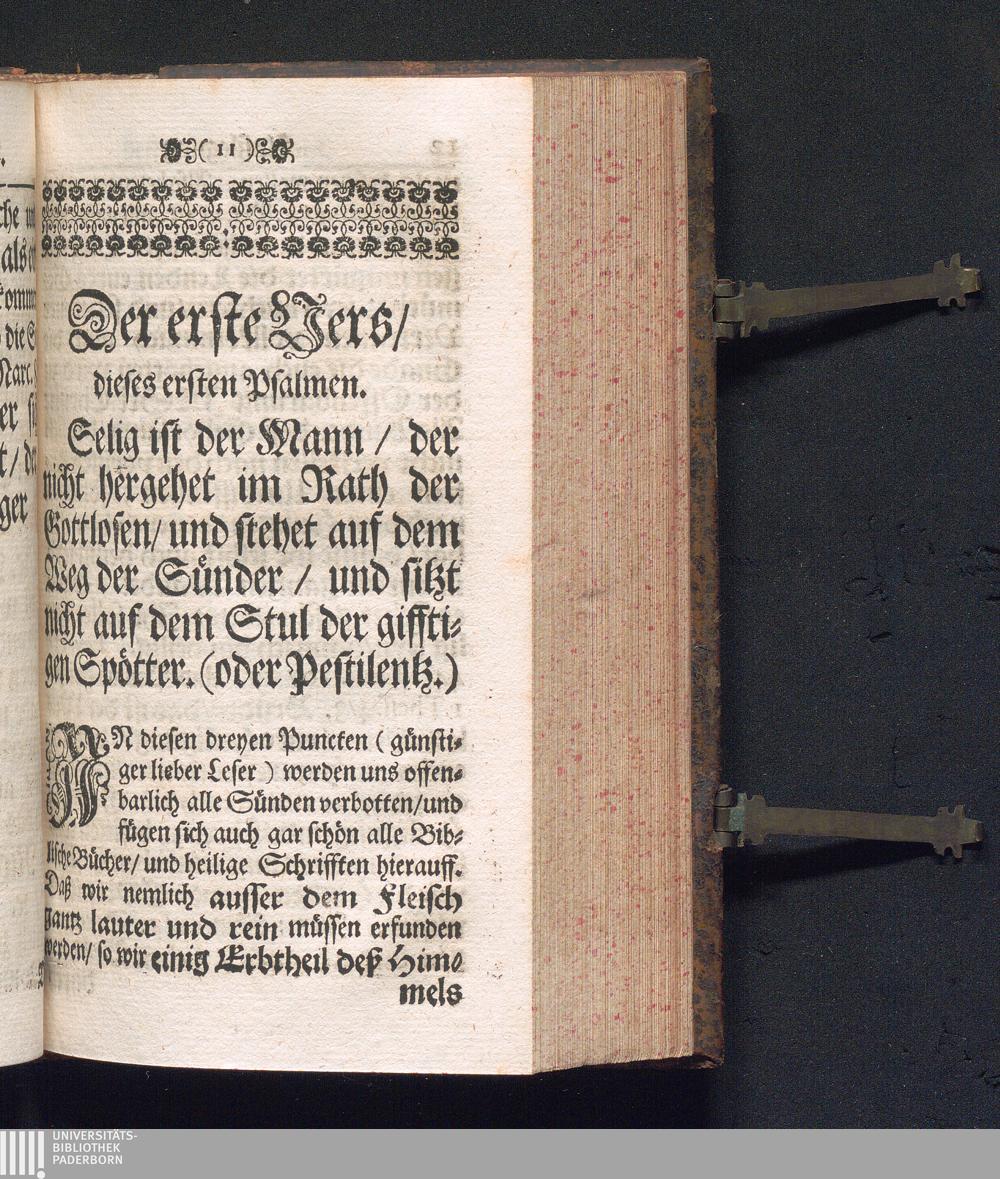 ( 11 )
Der erste Vers/
dieses ersten Psalmen.
Selig ist der Mann / der
nicht hergehet im Rath der
Gottlosen/ und stehet auf dem
Weg der Sünder / und sitzt
nicht auf dem Stul der giffti⸗
gen Spötter. (oder Pestilentz.)
IN diesen dreyen Puncten ( günsti⸗
ger lieber Leser ) werden uns offen⸗
barlich alle Sünden verbotten/und
fügen sich auch gar schön alle Bib⸗
lische Bücher/ und heilige Schrifften hierauff.
Daß wir nemlich ausser dem Fleisch
gantz lauter und rein müssen erfunden
werden/ so wir einig Erbtheil deß Him⸗
mels
UNIVERSITÄTS-
BIBLIOTHEK
PADERBORN